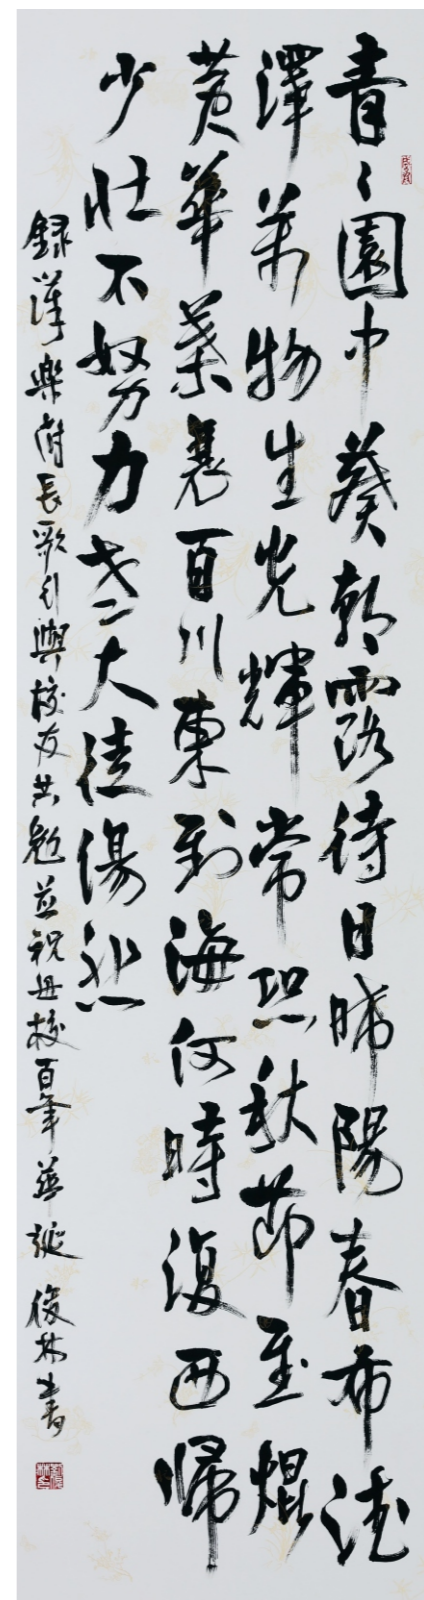 青々園中葵朝露待日晞陽春布德
澤萬物生光輝常恐秋節至焜
黃華葉衰百川東到海何時復西歸
少壯不努力老大徒傷悲
録漢樂府長歌行與校友共勉並祝母校百年華誕 俊林書